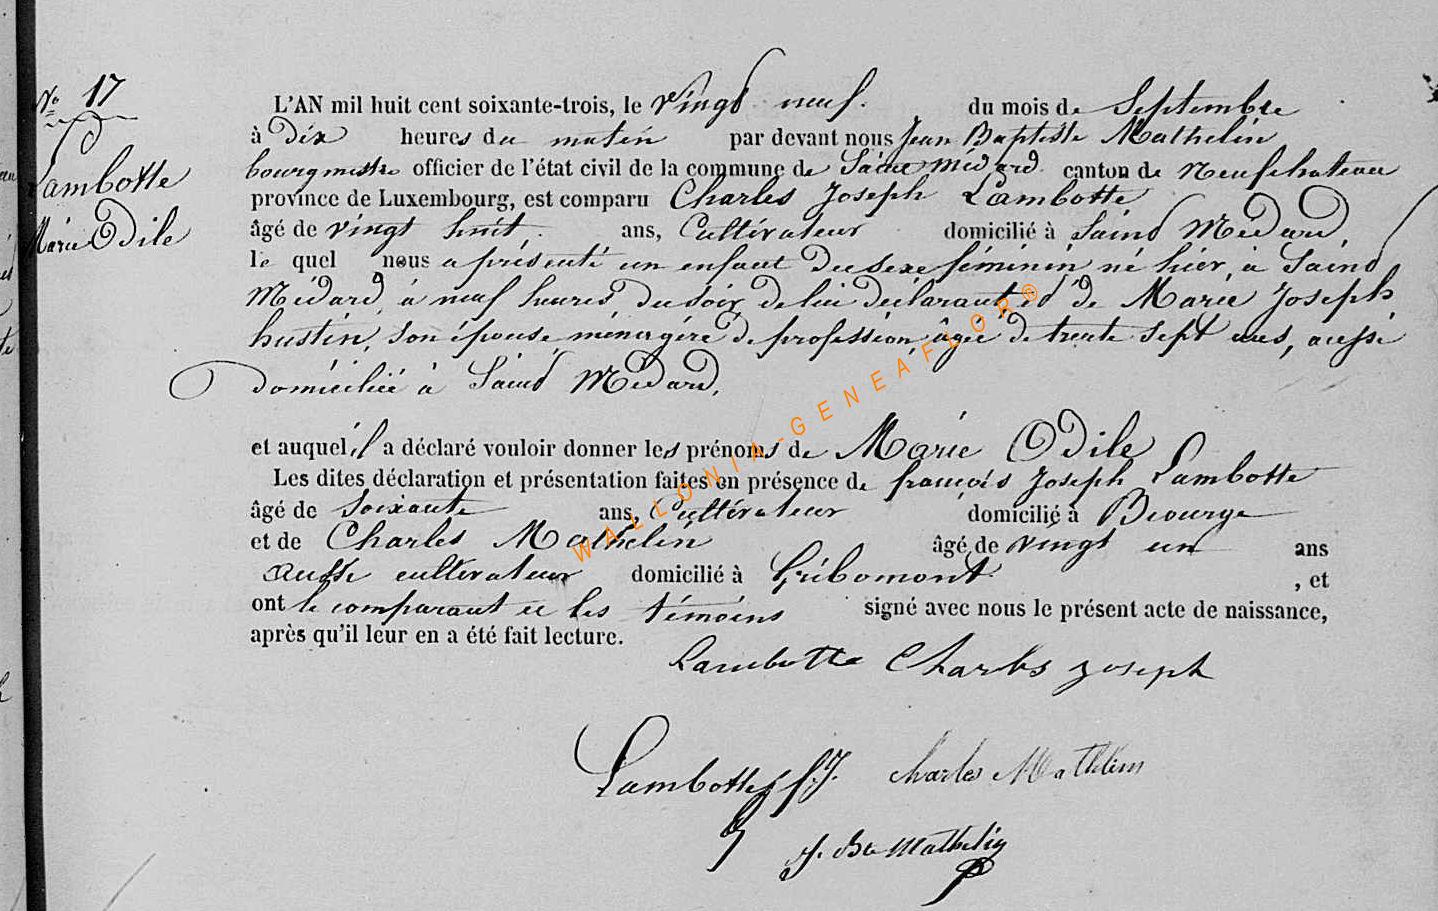 N° 17
Lambotte
Marie Odile
L'AN mil huit cent soixante-trois, le vingt neuf. du mois de Septembre
à Dix heures du matin par devant nous Jean Baptiste Mathelin
bourgmestre officier de l'état civil de la commune de Saint Médard canton de Neufchateau
province de Luxembourg, est comparu Charles Joseph Lambotte
âgé de vingt huit ans, Cultivateur domicilié à Saint Médard,
le quel nous a présenté un enfant Du sexe féminin né hier, à Saint
Médard, à neuf heures Du soir, de lui déclarant et de Marie Joseph
hustin, son épouse, ménagére de profession, âgée de trente sept ans, aussi
domiciliée à Saint Médard,
et auquel il a déclaré vouloir donner les prénoms de Marie Odile
Les dites déclaration et présentation faites en présence de françois Joseph Lambotte
âgé de soixante ans, Cultivateur domicilié à Biourge
et de Charles Mathelin âgé de vingt un ans
aussi cultivateur domicilié à Gribomont , et
ont le comparant et les témoins signé avec nous le présent acte de naissance,
après qu'il leur en a été fait lecture.
Lambotte Charles Joseph
Lambotte f. J. Charles Mathelin
J. Bte Mathelin
WALLONIA-GENEAFLOR®